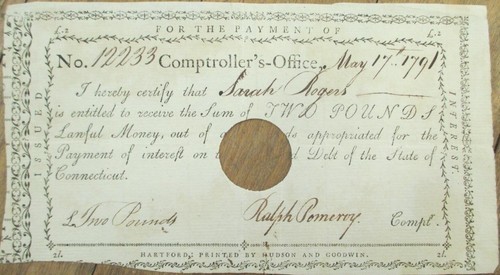 £.2 FOR THE PAYMENT OF £.2
No. 12233 Comptroller's-Office, May 17th 1791
I hereby certify that Sarah Rogers
is entitled to receive the Sum of TWO POUNDS
Lawful Money, out of appropriated for the
Payment of interest on Debt of the State of
Connecticut.
£ Two Pounds Ralph Pomeroy Compl.
2l. HARTFORD: PRINTED BY HUDSON AND GOODWIN. 2l.
ISSUED
INTEREST.